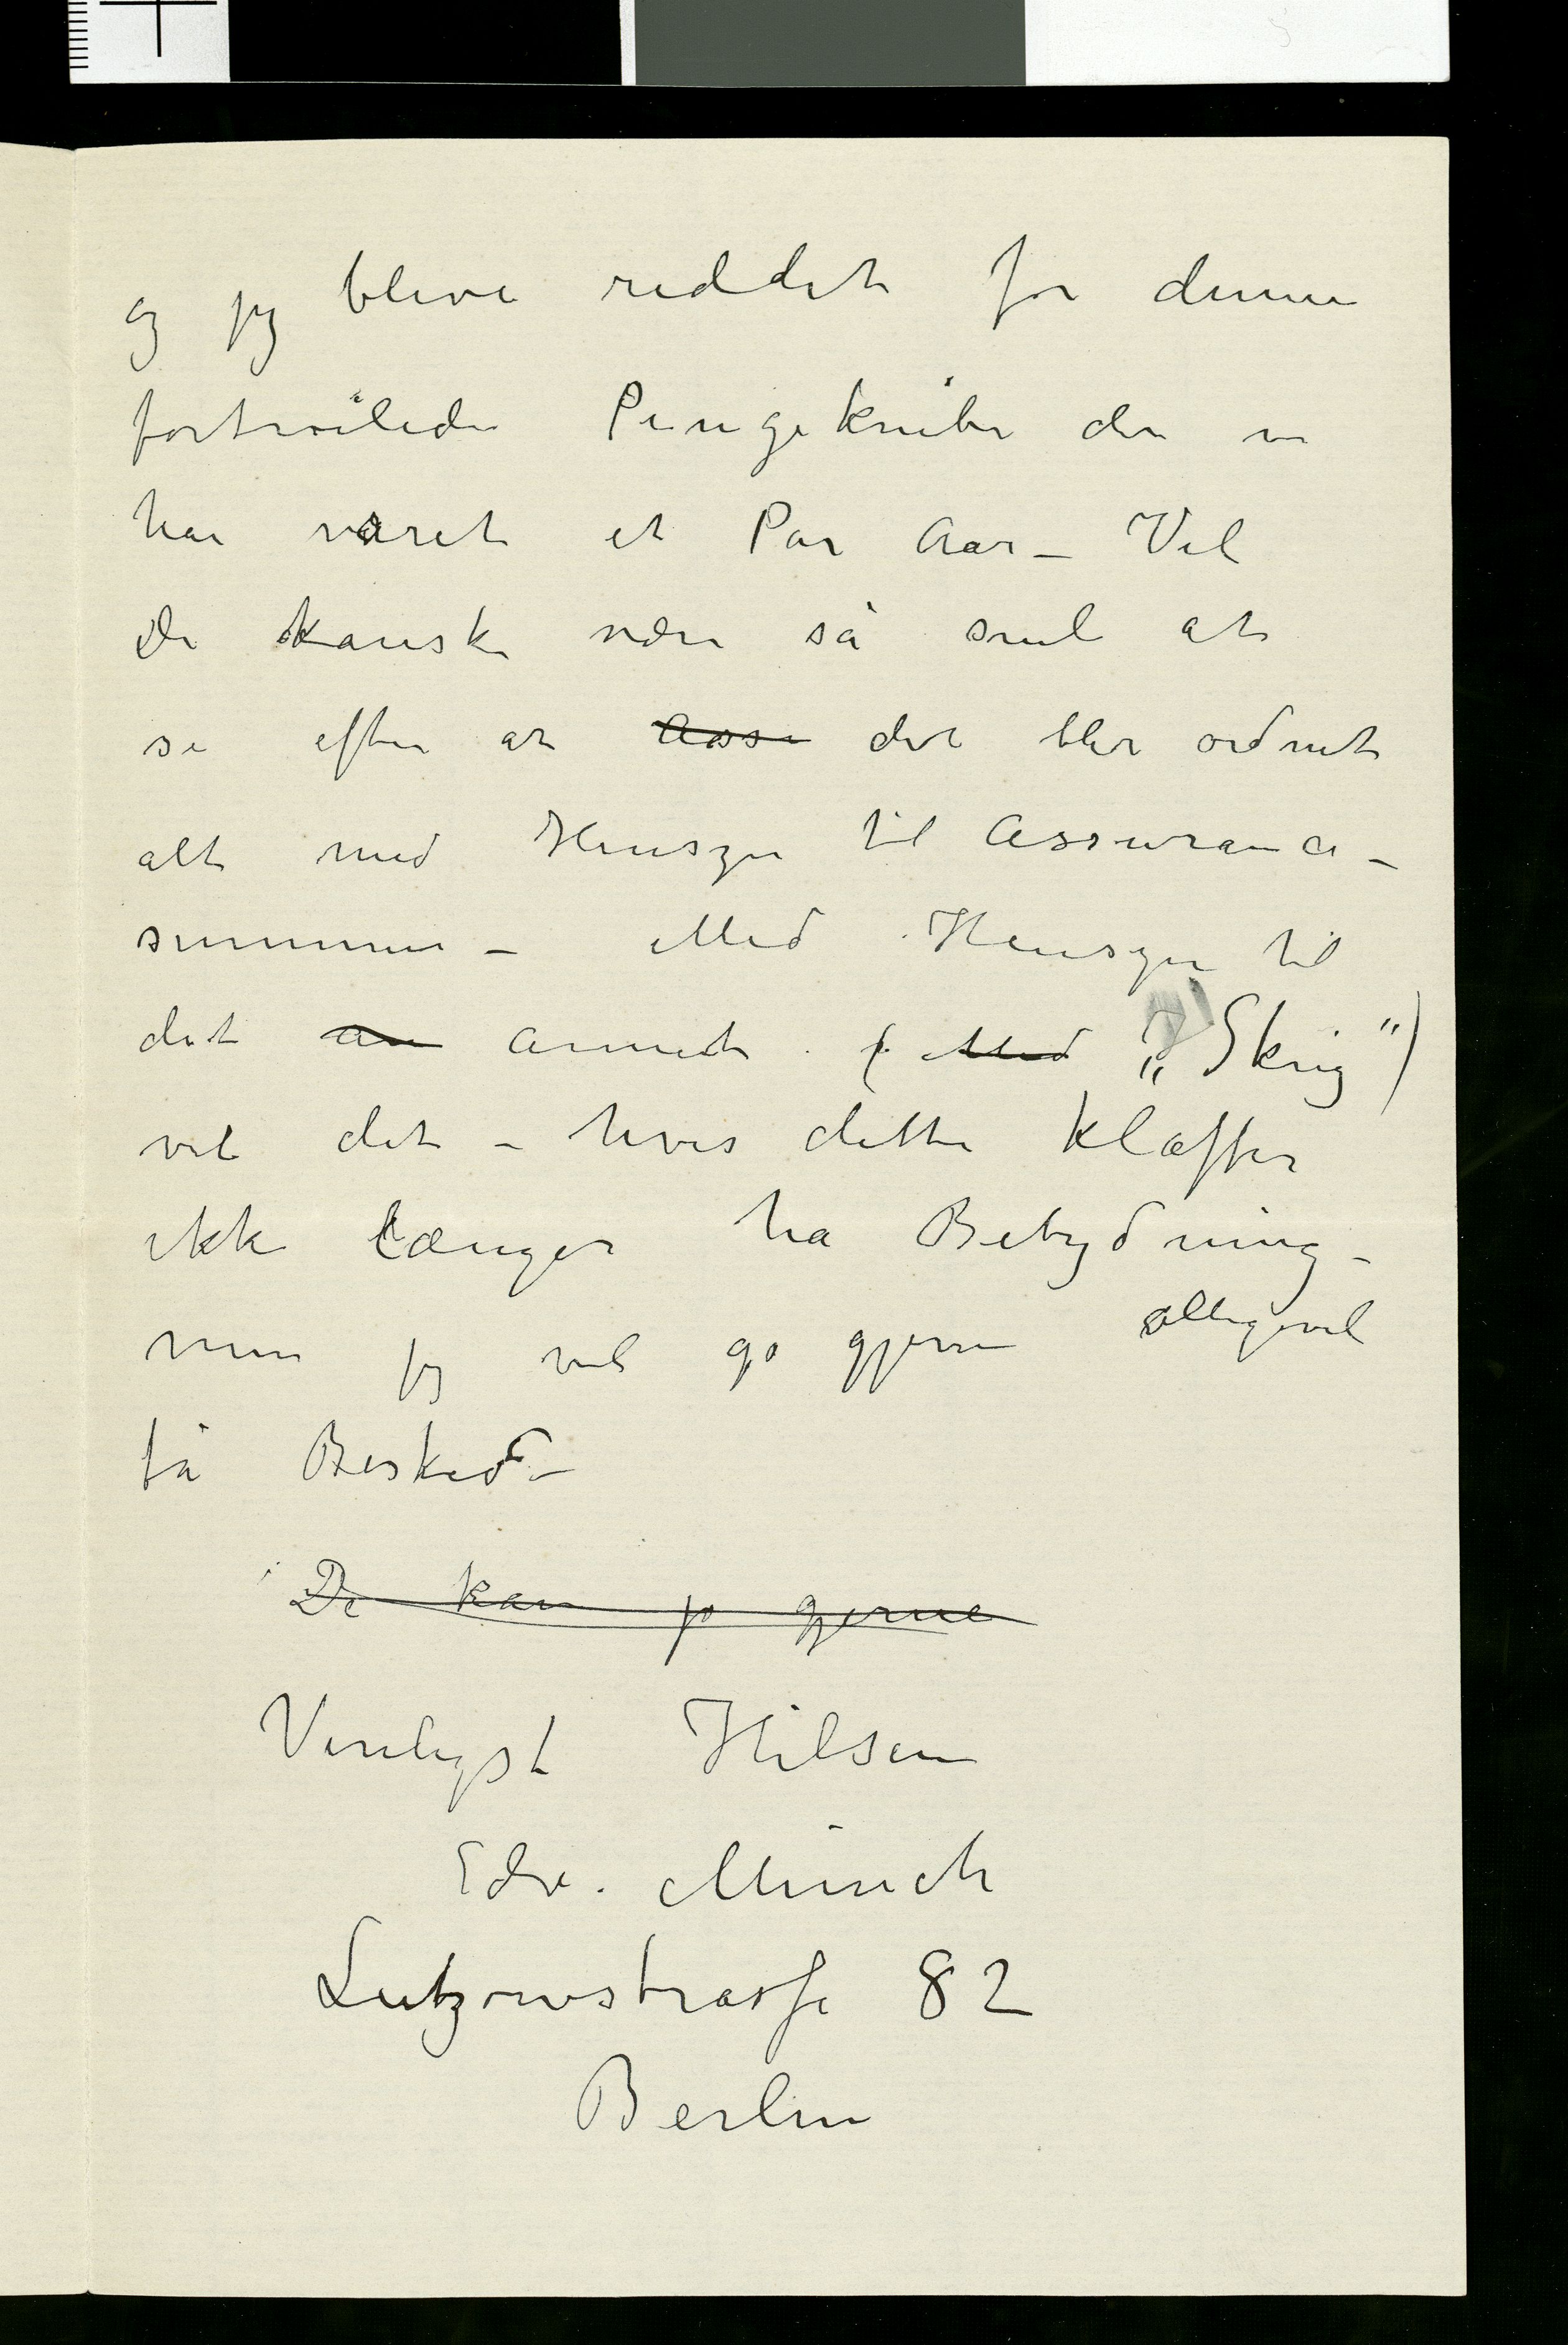 og jeg blive reddet for denne
fortvilede Pengeknibe der nu
har været et Par Aar – Vil
De kanske være så snil at
se efter at Asse det blir ordnet
alt med Hensyn til Assurance–
summen – Med Hensyn til
det an annet ( Med „Skrig“)
vil det – hvis dette klaffer
ikke længer ha Betydning –
men jeg vil jo gjerne alligevel
få Besked –
De kan jo gjerne
Venligst Hilsen
Edv. Munch
Lutzowstrasse 82
Berlin